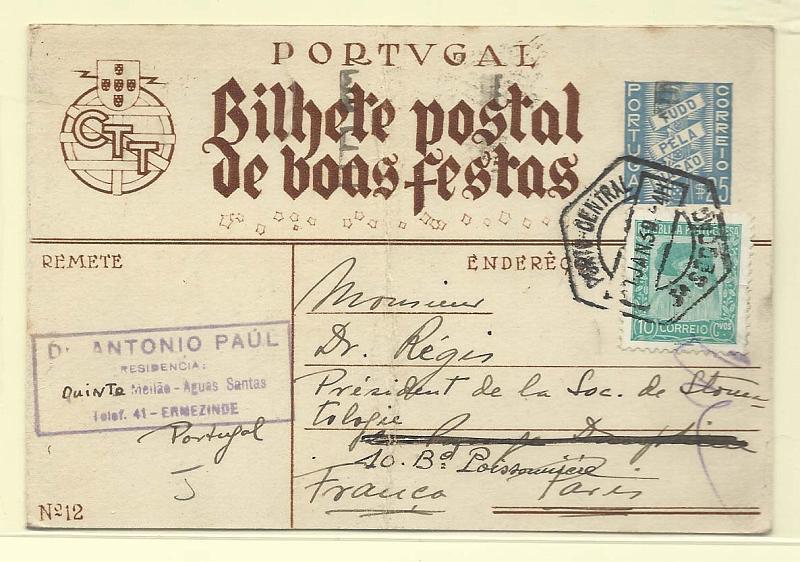 PORTVGAL
CTT
Bilhete postal
de boas festas
PORTUGAL
CORREIO
TUDO
PELA
$25
PORTO-CENTRAL
JAN
REPUBLICA PORTUGUESA
10 CORREIO Cvos
REMETE
ENDERÊÇO
Dr ANTONIO PAÚL
RESIDENCIA:
Quinta Meilão - Aguas Santas
Telef. 41 - ERMEZINDE
Portugal
Nº12
Monsieur
Dr. Régis
Président de la Soc. de Stoma-
tologie
10. Bd Poissonnière
França Paris